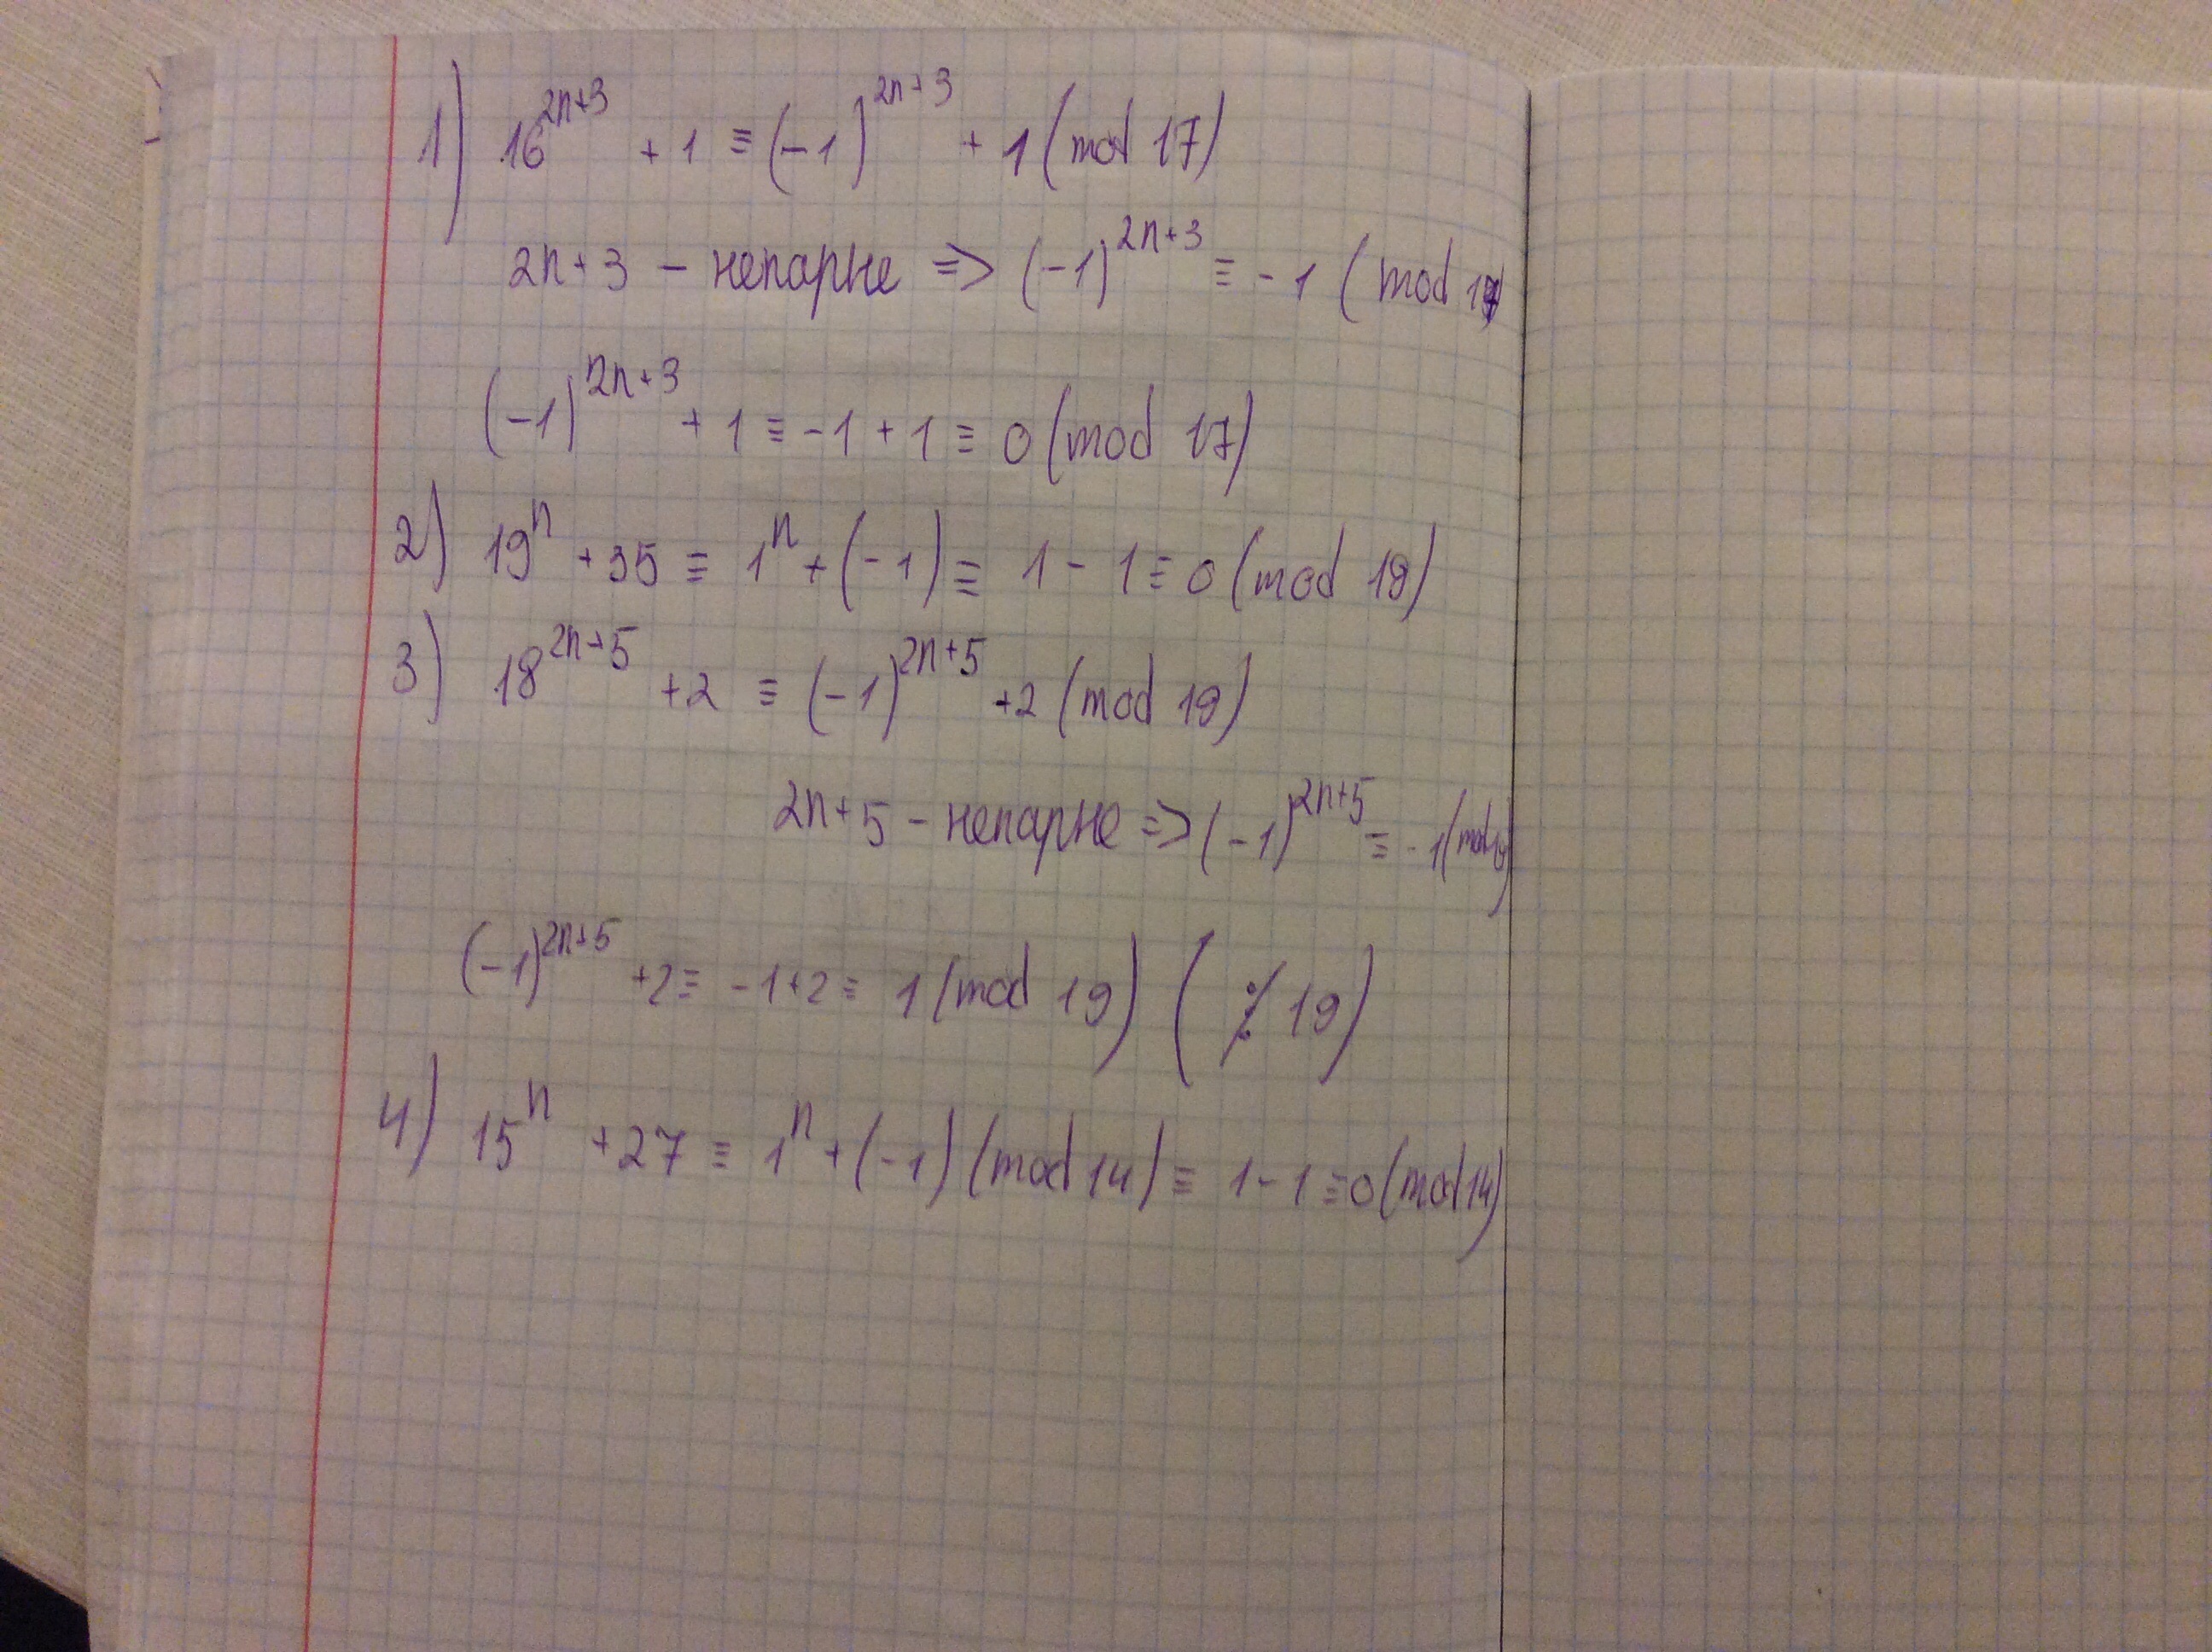 1) 16^{2n+3} + 1 ≡ (-1)^{2n+3} + 1 (mod 17)
2n+3 – непарне => (-1)^{2n+3} ≡ -1 (mod 17)
(-1)^{2n+3} + 1 ≡ -1 + 1 ≡ 0 (mod 17)
2) 19^n + 35 ≡ 1^n + (-1) ≡ 1 - 1 ≡ 0 (mod 18)
3) 18^{2n+5} + 2 ≡ (-1)^{2n+5} + 2 (mod 19)
2n+5 – непарне => (-1)^{2n+5} ≡ -1 (mod 19)
(-1)^{2n+5} + 2 ≡ -1 + 2 ≡ 1 (mod 19) ( ⋮̸ 19)
4) 15^n + 27 ≡ 1^n + (-1) (mod 14) ≡ 1 - 1 ≡ 0 (mod 14)